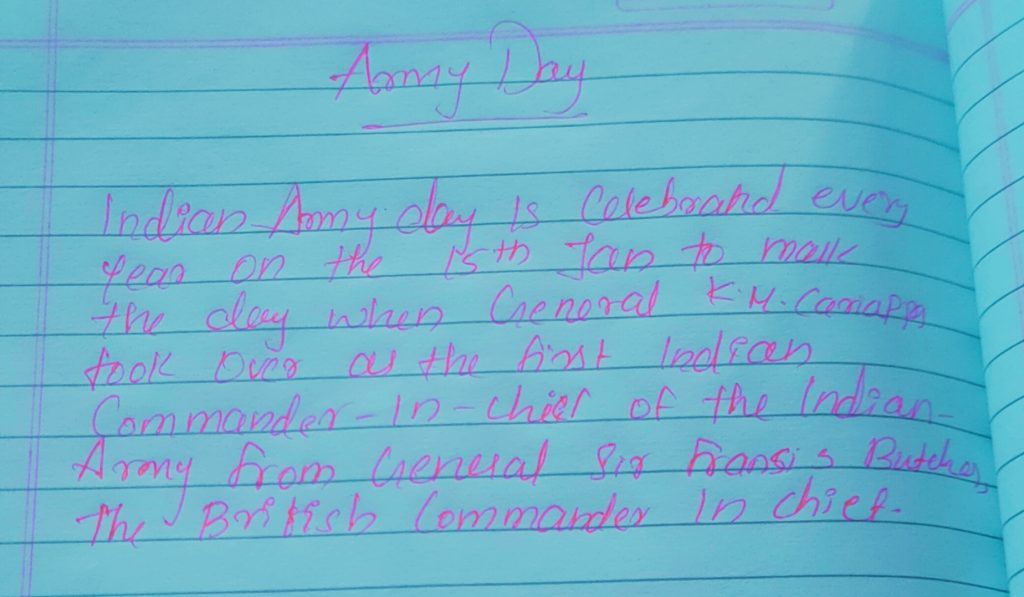 Army Day
Indian Army day is Celebrated every
year on the 15th Jan to mark
the day when General K.M. Cariappa
took over as the first Indian
Commander-in-chief of the Indian-
Army from General Sir Fransis Butcher,
The British Commander in chief.